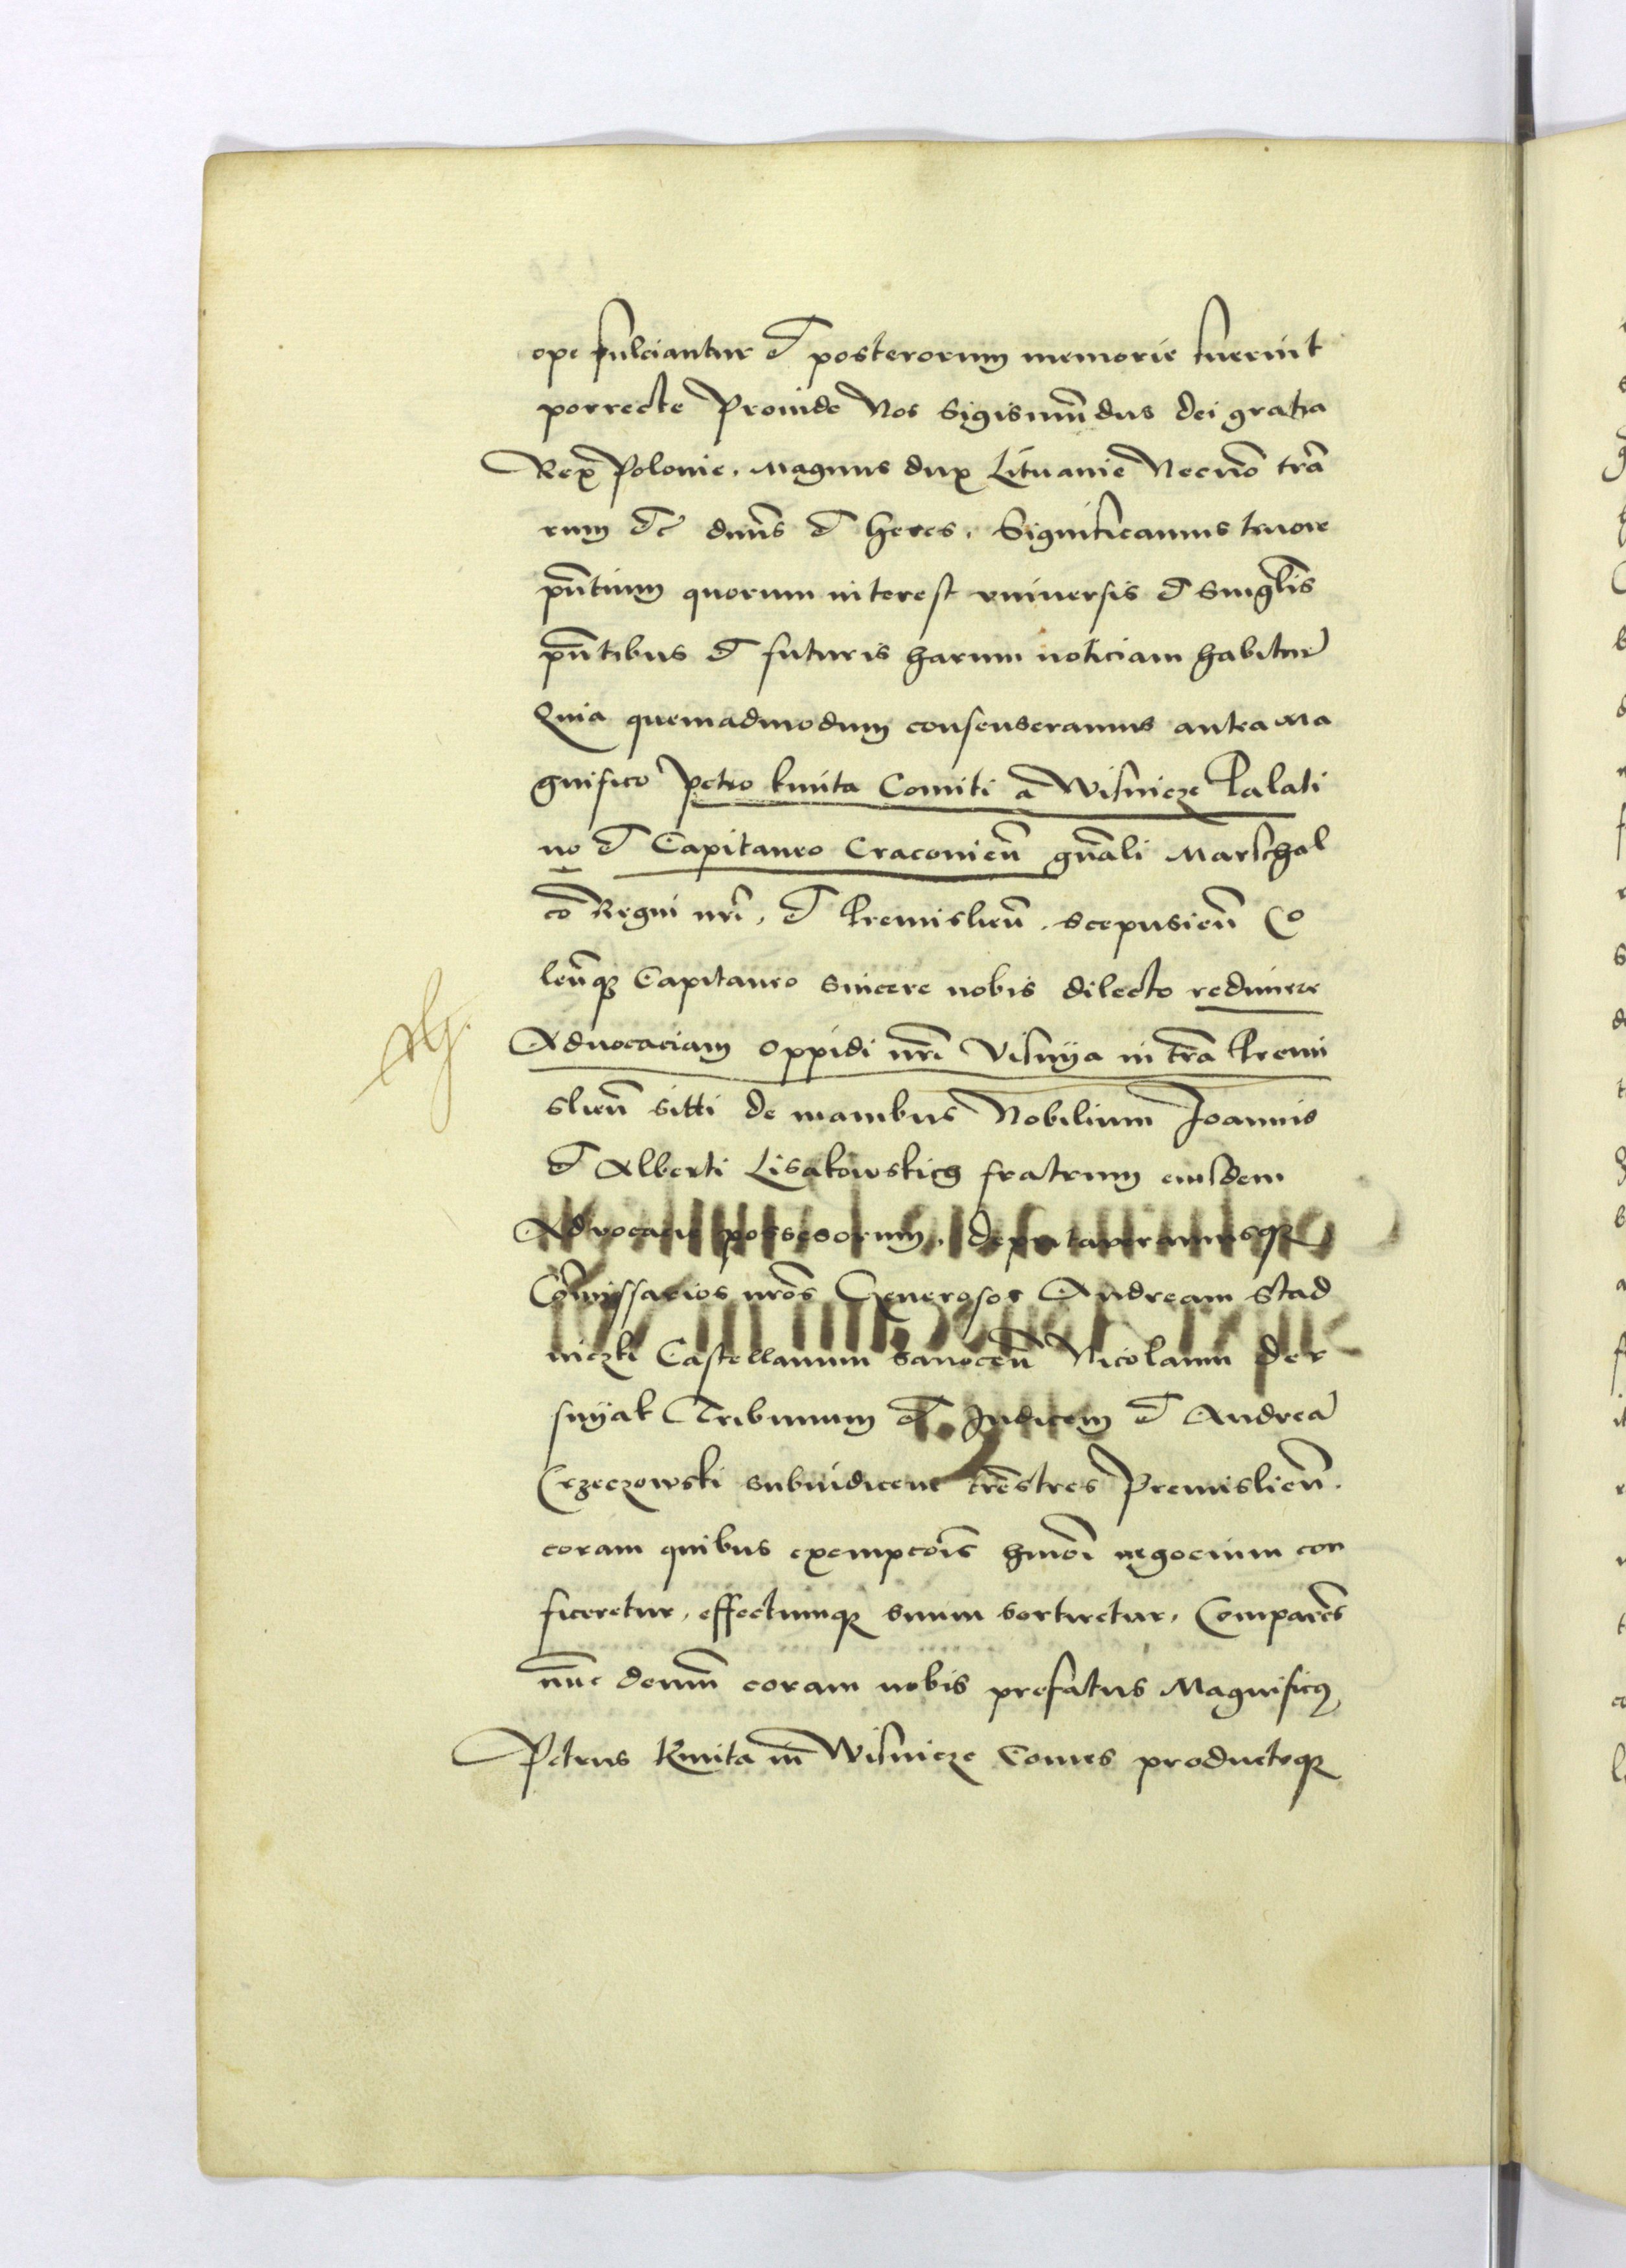 ope fulciantur et posterorum memorie fuerint
porrecte Proinde Nos Sigismūdus dei gratia
Rex Polonie, Magnus dux Lituanie Necnō trā
rum etc̄ dn̄us et heres. Significamus tenore
pn̄tium quorum interest vniuersis et singlis
pn̄tibus et futuris harum noticiam habitur̄
Quia quemadmodum consenseramus antea Ma
gnifico Petro kmita Comiti a Wisnicze Palati
no et Capitaneo Cracouien̄ gn̄ali Marschal
co Regni nrī, et Premislien̄. Scepusien̄ Co
len̄q3 Capitaneo sincere nobis dilecto redimere
Aduocaciam oppidi nrī Visnÿa in trā Premi
slien̄ sitti de manibus Nobilium Joannis
et Alberti Lisakowskich fratrum eiusdem
Aduocacie possessorum, deputaveramusq3
Cōmissarios nrōs Generosos Andream Stad
niczki Castellanum Sanocen̄ Nicolaum Der
snÿak Tribunum et Judicem et Andreā
Crzeczowski Subiudicem trēstres Premislien̄.
coram quibus exempcōis hmōi negocium con
ficeretur, effectumq3 suum sortiretur, Comparēs
nūc demū coram nobis prefatus Magnificus
Petrus Kmita in Wisnicze Comes producteq3